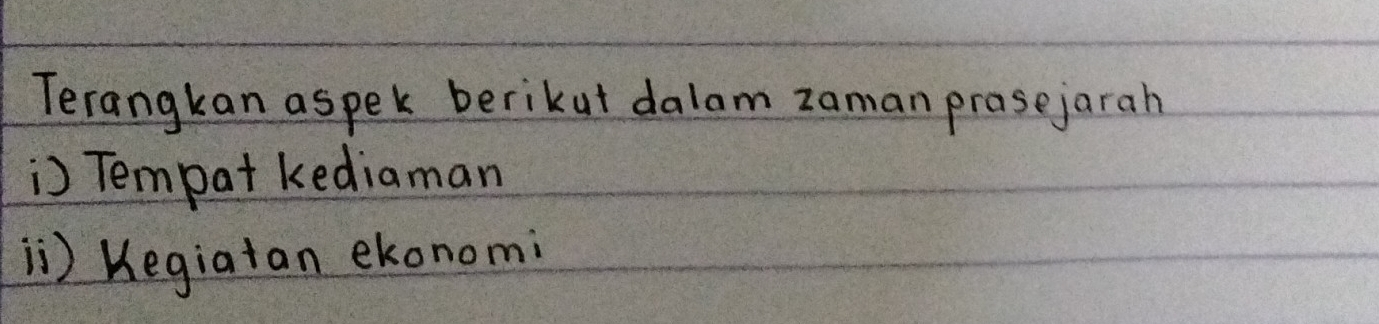 Terangkan aspek berikut dalam zaman prasejarah
i) Tempat kediaman
ii) Kegiatan ekonomi